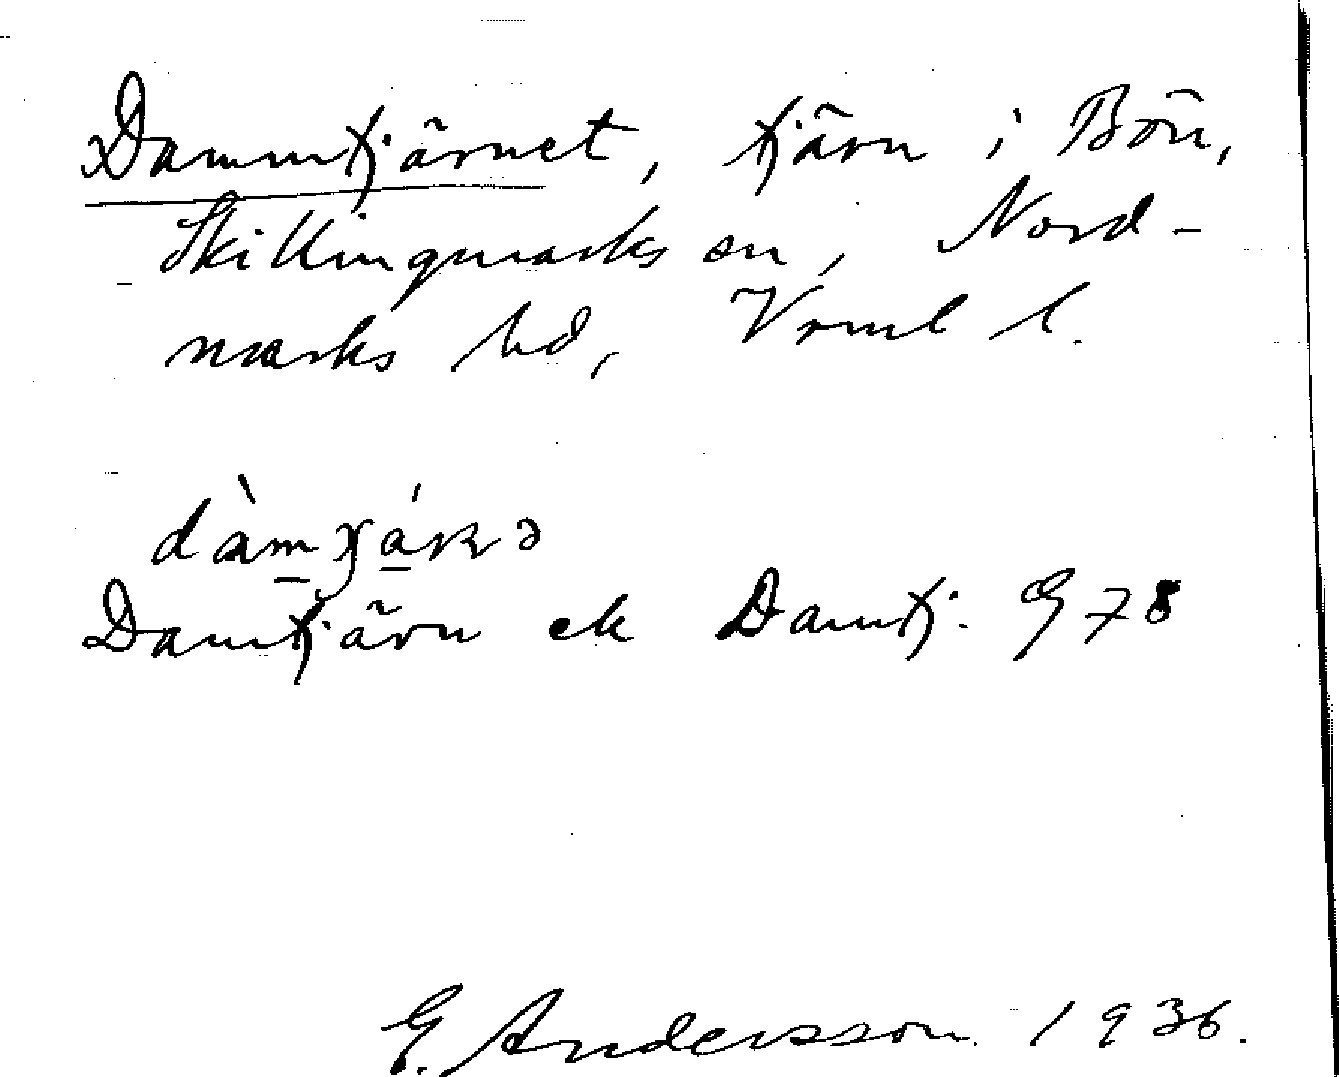 Dammtjärnet, tjärn i Bön,
Skillingmarks sn, Nord-
marks hd, Vrml l.
Damtjärn ek Damtj. G 78
G. Andersson 1936.